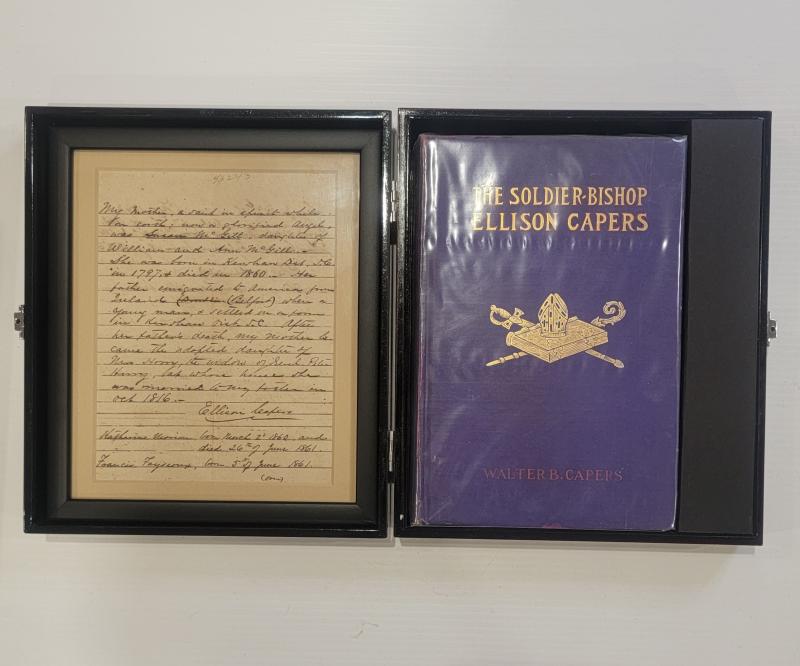 My Mother, a saint in spirit while
on earth, now a glorified Angel,
was Susan McGill, daughter of
William and Ann McGill.—
She was born in Kershaw Dist. S.C.
in 1797, & died in 1860.— Her
father emigrated to America from
Ireland (Belfast) when a
young man, & settled on a farm
in Kershaw Dist. S.C. After
her father's death, my mother be
came the adopted daughter of
Mrs Horry, the widow of Genl. Peter
Horry, at whose house she
was married to my father in
Oct 1816.—
Ellison Capers
Katherine born March 2d 1860, and
died 26th of June 1861.
Francis Fayssoux, born 5th of June 1861.
(over)
THE SOLDIER-BISHOP
ELLISON CAPERS
WALTER B. CAPERS